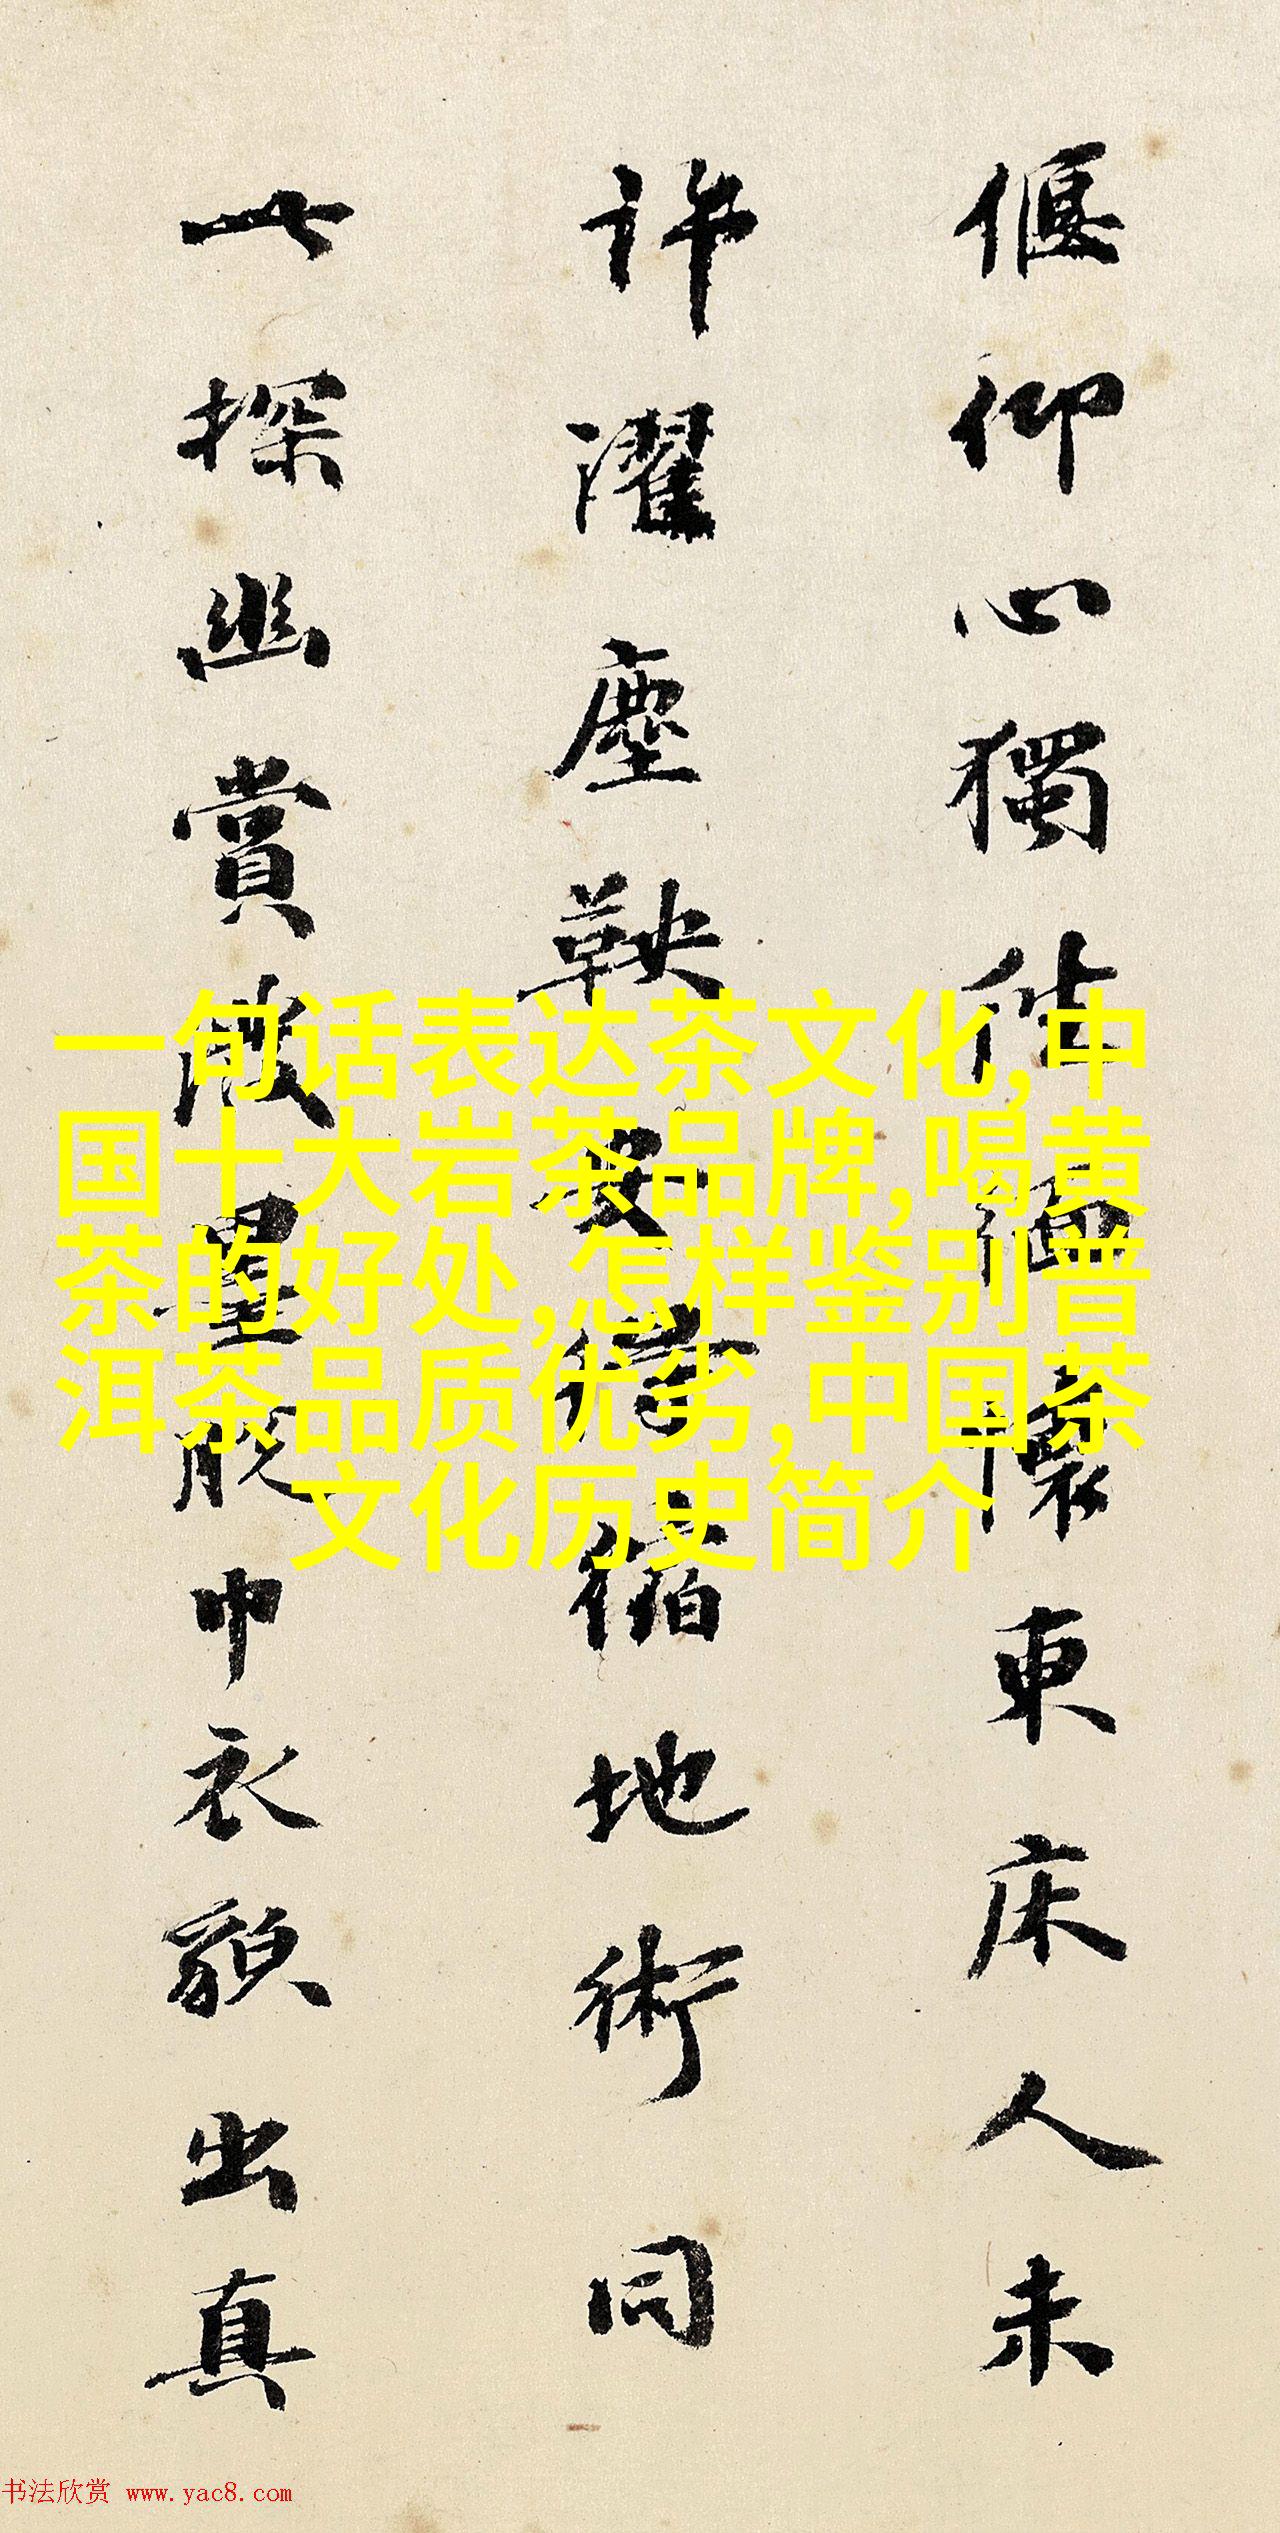 偃仰心獨往緬懷東床人未
許濯塵鞅安得縮地術同
此探幽賞潑墨脫巾衣貌出真
一句话表达茶文化,中
国十大岩茶品牌,喝黄
茶的好处,怎样鉴别普
洱茶品质优劣,中国茶
文化历史简介
书法欣赏 www.yac8.com